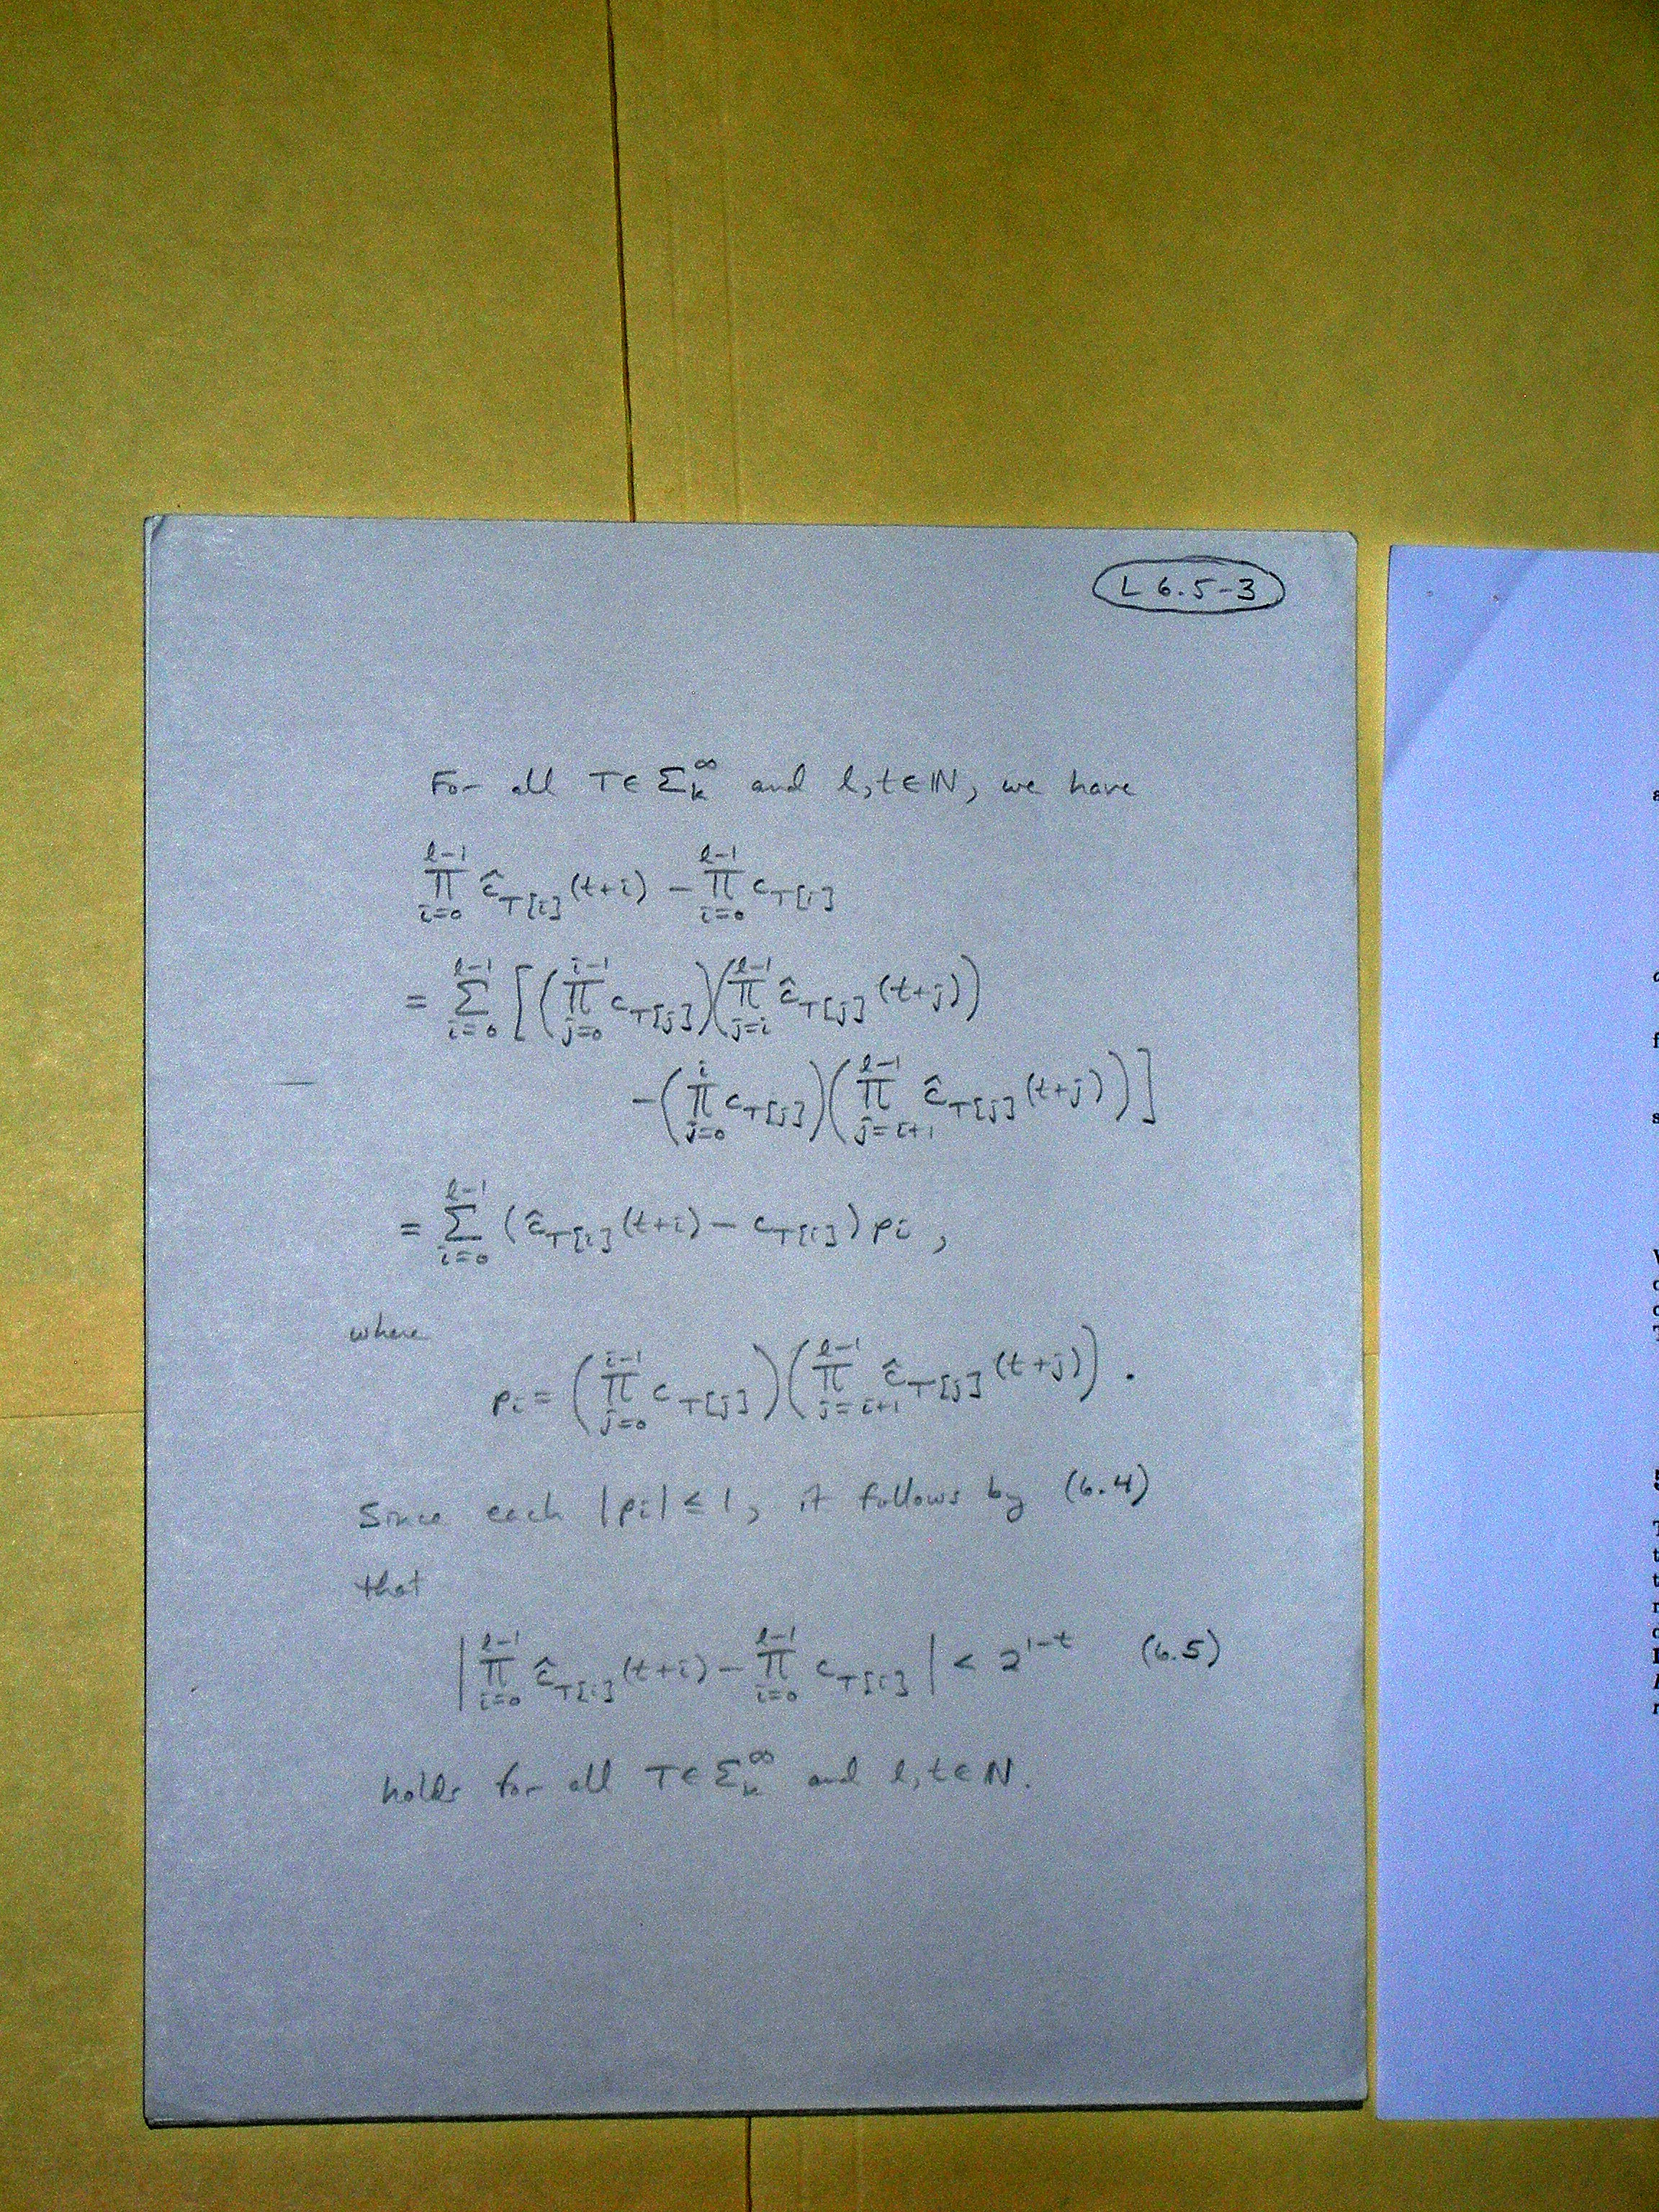 L 6.5-3
For all T ∈ Σ_k^∞ and l, t ∈ ℕ, we have
∏_{i=0}^{l-1} ĉ_{T[i]}(t+i) - ∏_{i=0}^{l-1} c_{T[i]}
= Σ_{i=0}^{l-1} [(∏_{j=0}^{i-1} c_{T[j]})(∏_{j=i}^{l-1} ĉ_{T[j]}(t+j))
-(∏_{j=0}^{i} c_{T[j]})(∏_{j=i+1}^{l-1} ĉ_{T[j]}(t+j))]
= Σ_{i=0}^{l-1} (ĉ_{T[i]}(t+i) - c_{T[i]}) p_i ,
where
p_i = (∏_{j=0}^{i-1} c_{T[j]})(∏_{j=i+1}^{l-1} ĉ_{T[j]}(t+j)) .
Since each |p_i| ≤ 1, it follows by (6.4)
that
|∏_{i=0}^{l-1} ĉ_{T[i]}(t+i) - ∏_{i=0}^{l-1} c_{T[i]}| < 2^{1-t} (6.5)
holds for all T ∈ Σ_k^∞ and l, t ∈ ℕ.